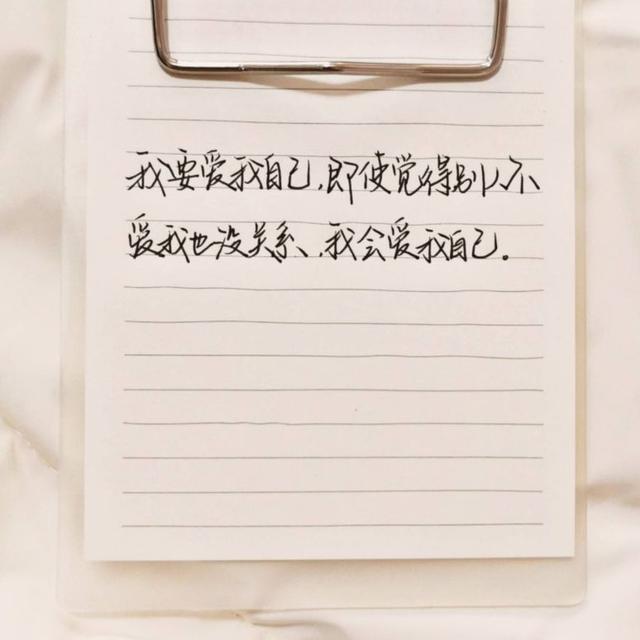 我要爱我自己,即使觉得别人不
爱我也没关系、,我会爱我自己。